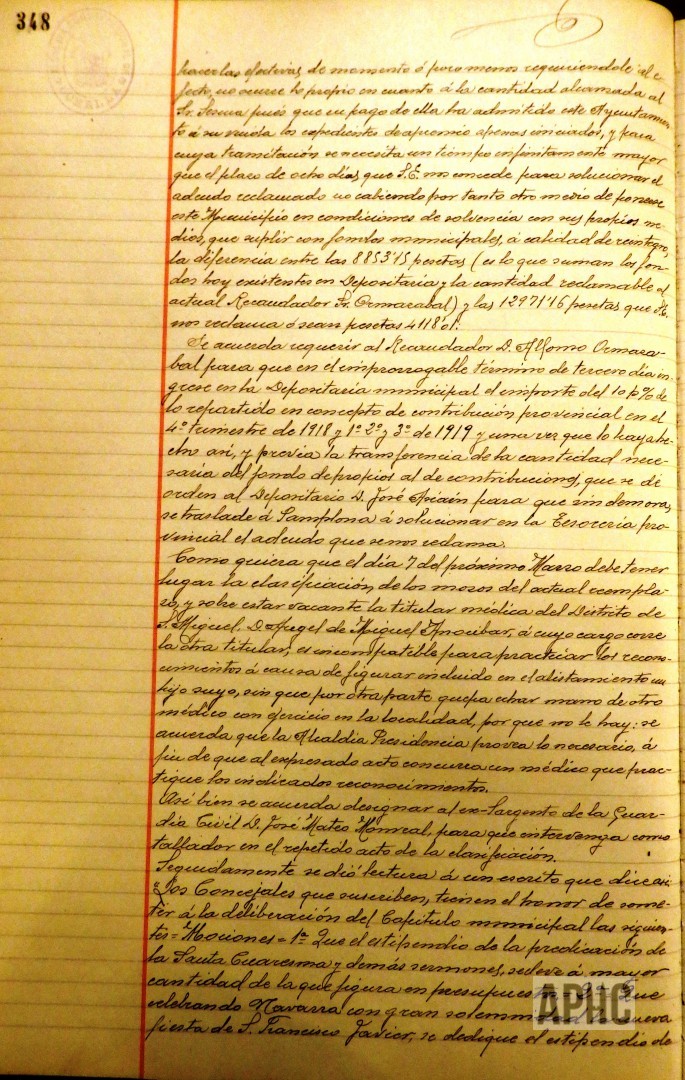 348
hacerlas efectivas de momento ó poco menos requiriendole al e-
fecto, no ocurre lo propio en cuanto á la cantidad alcanzada al
Sr. Sesma pues que en pago de ella ha admitido este Ayuntamien-
to á su viuda los expedientes de apremio apenas iniciados, y para
cuya tramitación se necesita un tiempo infinitamente mayor
que el plazo de ocho días que S.E. nos concede para solucionar el
adeudo reclamado no cabiendo por tanto otro medio de ponerse
este Municipio en condiciones de solvencia con sus propios me-
dios, que suplir con fondos municipales, á calidad de reintegro,
la diferencia entre las 8853'15 pesetas (es lo que suman los fon-
dos hoy existentes en Depositaría y la cantidad reclamable al
actual Recaudador Sr. Ormazabal) y las 12971'16 pesetas que S.E.
nos reclama ó sean pesetas 4118'01.
Se acuerda requerir al Recaudador D. Alfonso Ormaza-
bal para que en el improrrogable término de tercero día in-
grese en la Depositaría municipal el importe del 10 p% de
lo repartido en concepto de contribución provincial en el
4º trimestre de 1918 y 1º 2º y 3º de 1919 y una vez que lo haya he-
cho así, y previa la transferencia de la cantidad nece-
saria del fondo de propios al de contribuciones, que se dé
orden al Depositario D. José Apicain para que sin demora,
se traslade á Pamplona á solucionar en la Tesorería pro-
vincial el adeudo que se nos reclama.
Como quiera que el día 7 del próximo Marzo debe tener
lugar la clasificación de los mozos del actual reempla-
zo, y sobre estar vacante la titular médica del Distrito de
S. Miguel. D. Angel de Miguel Ancibar, á cuyo cargo corre
la otra titular, es incompatible para practicar los recono-
cimientos á causa de figurar incluido en el alistamiento un
hijo suyo, sin que por otra parte quepa echar mano de otro
médico con ejercicio en la localidad, por que no le hay: se
acuerda que la Alcaldía Presidencia provea lo necesario, á
fin de que al expresado acto concurra un médico que prac-
tique los indicados reconocimientos.
Asi bien se acuerda designar al ex-Sargento de la Guar-
dia Civil D. José Mateo Monreal, para que intervenga como
tallador en el repetido acto de la clasificación.
Seguidamente se dió lectura á un escrito que dice así
"Los Concejales que suscriben, tienen el honor de some-
ter á la deliberación del Capítulo municipal las siguien-
tes = Mociones = 1ª Que el estipendio de la predicación de
la Santa Cuaresma y demás sermones, se eleve á mayor
cantidad de la que figura en presupuesto 2ª Que
celebrando Navarra con gran solemnidad la nueva
fiesta de S. Francisco Javier, se dedique el estipendio de
APHC